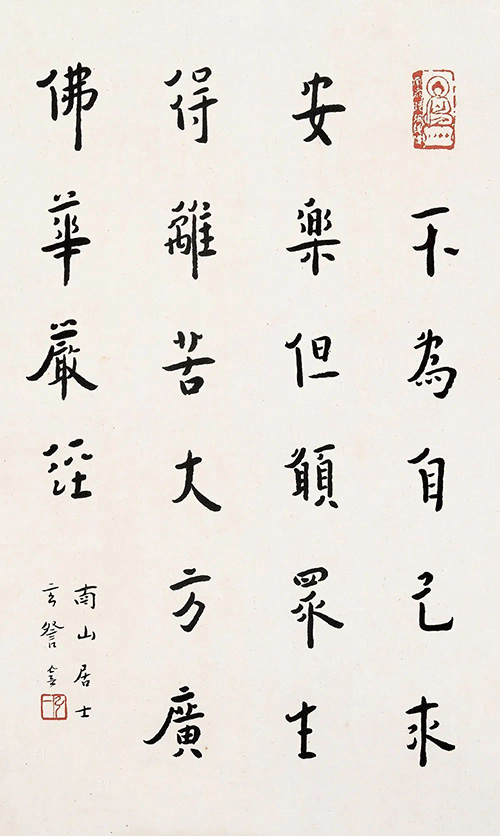 不為自己求
安楽但願眾生
得離苦大方廣
佛華嚴經
南山居士
玄詧